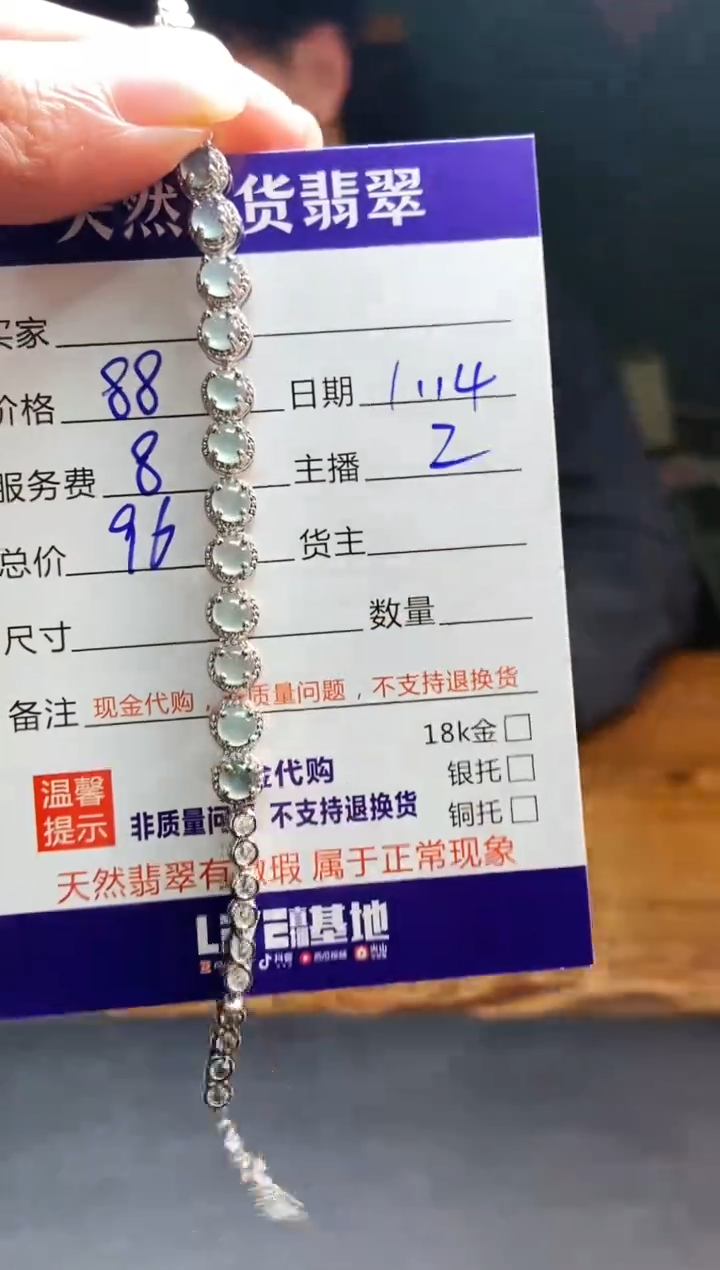 天然 货翡翠
买家
价格 88 日期 1.14
服务费 8 主播 2
总价 96 货主
尺寸 数量
备注 现金代购， 质量问题，不支持退换货
18k金
温馨提示 金代购 银托
非质量问 不支持退换货 铜托
天然翡翠有微瑕 属于正常现象
直播基地